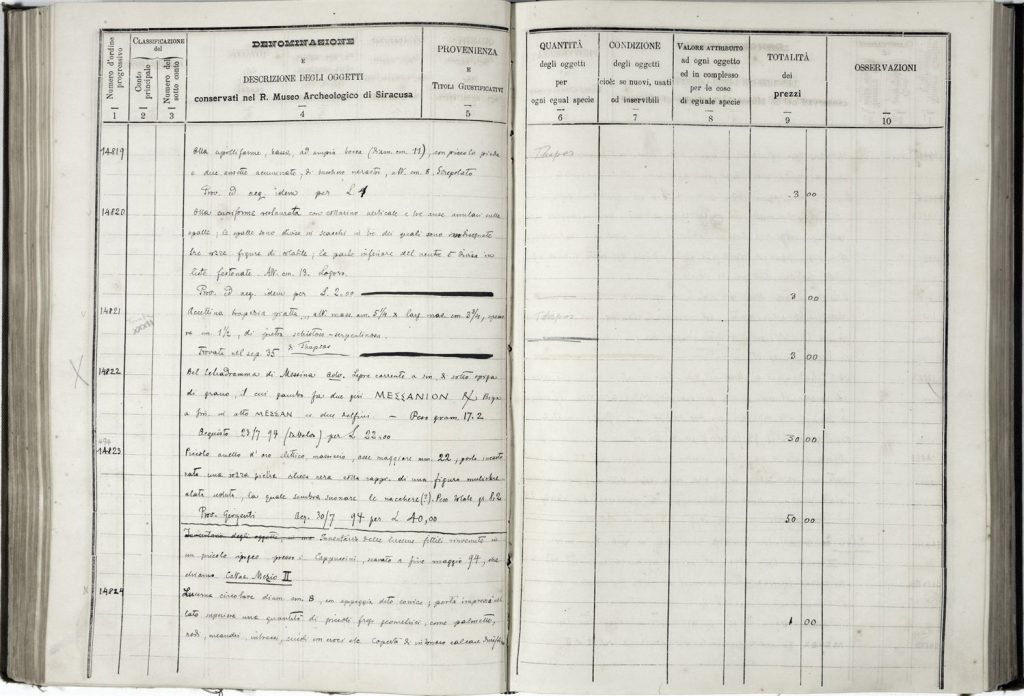 Numero d'ordine progressivo
CLASSIFICAZIONE
del
Conto principale
Numero del sotto conto
DENOMINAZIONE
E
DESCRIZIONE DEGLI OGGETTI
conservati nel R. Museo Archeologico di Siracusa
PROVENIENZA
E
TITOLI GIUSTIFICATIVI
1 2 3 4 5
QUANTITÀ
degli oggetti
per
ogni egual specie
6
CONDIZIONE
degli oggetti
cioè: se nuovi, usati
od inservibili
7
VALORE ATTRIBUITO
ad ogni oggetto
ed in complesso
per le cose
di eguale specie
8
TOTALITÀ
dei
prezzi
9
OSSERVAZIONI
10
14819 Olla apodiforme, bassa, ad ampia bocca (diam. cm. 11), con piccolo piede
e due ansette acuminate, di bucchero nerastro, alt. cm. 8. Screpolato
Prov. ed acq. idem per L. 1
Thapsos
3 00
14820 Olla cuoriforme restaurata con collarino verticale e tre anse anulari sulle
spalle; le spalle sono divise in scacchi in tre dei quali sono
tre rozze figure di volatile; la parte inferiore del ventre è divisa in
liste Alt. cm. 13. Logoro.
Prov. ed acq. idem per L. 2.00
3 00
14821 Accettina trapezia piatta, alt. mass. cm. 5 1/4 x larg. mas. cm. 3 3/4,
cm. 1 1/2, di pietra schistoso-serpentinosa.
Trovata nel sep. 35 di Thapsos
Thapsos
3 00
14822 Bel tetradramma di Messina Lepre corrente a sin. sotto spiga
di grano, il cui gambo fa due giri MESSANION Biga
a sin. in alto MESSAN due delfini. — Peso gram. 17.2
Acquisto 23/7 94 per L 22.00
30 00
14823 Piccolo anello d'oro massiccio, asse maggiore mm. 22, porta
una rozza pietra nera colla rappr. di una figura muliebre
alata seduta, la quale sembra suonare le nacchere (?). Peso totale gr.
Prov. Girgenti Acq. 30/7 94 per L 40,00
50 00
Inventario degli oggetti, Inventario delle lucerne fittili rinvenute in
un piccolo ipogeo presso i Cappuccini, scavato a fine maggio 94, che
diciamo II
14824 Lucerna circolare diam. cm. 8, con appoggia dito conico; porta impressa nel
lato superiore una quantità di piccoli fregi geometrici, come palmette,
rosette, meandri, intrecci, croci etc. Coperta di intonaco calcare.
1 00